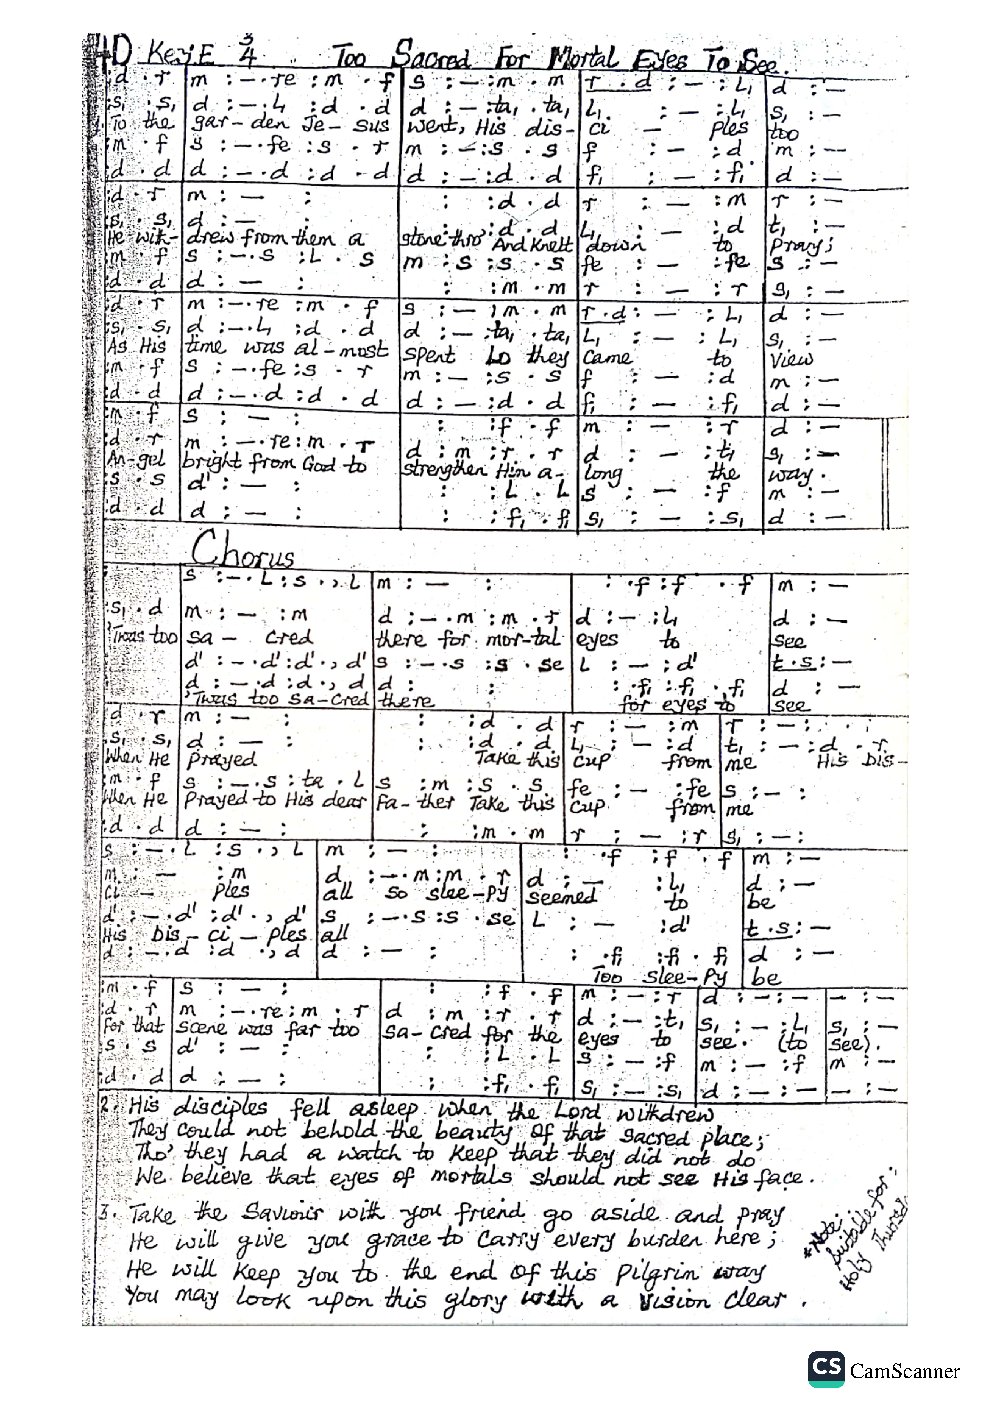 4D Key: E 3/4 Too Sacred For Mortal Eyes To See.
:d . r | m : — . re : m . f | s : — : m . m | r . d : — : L, | d : —
:s, . s, | d : — . L, : d . d | d : — : ta, . ta, | L, : — : L, | s, : —
To the gar-den Je-sus went, His dis-ci — ples too
:m . f | s : — . fe : s . r | m : — : s . s | f : — : d | m : —
:d . d | d : — . d : d . d | d : — : d . d | f, : — : f, | d : —
:d . r | m : — : | : : d . d | r : — : m | r : —
:s, . s, | d : — : | : : d . d | L, : — : d | t, : —
He with-drew from them a stone thro' And knelt down to pray;
:m . f | s : — . s : L . s | m : s : s . s | fe : — : fe | s : —
:d . d | d : — : | : : m . m | r : — : r | s, : —
:d . r | m : — . re : m . f | s : — : m . m | r . d : — : L, | d : —
:s, . s, | d : — . L, : d . d | d : — : ta, . ta, | L, : — : L, | s, : —
As His time was al-most spent Lo they came to view
:m . f | s : — . fe : s . r | m : — : s . s | f : — : d | m : —
:d . d | d : — . d : d . d | d : — : d . d | f, : — : f, | d : —
:m . f | s : — : | : : f . f | m : — : r | d : —
:d . r | m : — . re : m . r | d : m : r . r | d : — : t, | s, : —
An-gel bright from God to strengthen Him a-long the way.
:s . s | d' : — : | : : L . L | s : — : f | m : —
:d . d | d : — : | : : f, . f, | s, : — : s, | d : —
Chorus
s : — . L : s . , L | m : — : | : . f : f . f | m : —
:s, . d | m : — : m | d : — . m : m . r | d : — : L, | d : —
'Twas too sa — cred there for mor-tal eyes to see
d' : — . d' : d' . , d' | s : — . s : s . se | L : — : d' | t . s : —
d : — . d : d . , d | d : : | : . f, : f, . f, | d : —
'Twas too sa-cred there for eyes to see
:d . r | m : — : | : : d . d | r : — : m | r : — : . .
:s, . s, | d : — : | : : d . d | L, : — : d | t, : — : d . r
When He prayed Take this cup from me His Dis-
:m . f | s : — . s : ta . L | s : m : s . s | fe : — : fe | s : — :
When He Prayed to His dear Fa-ther Take this cup from me
:d . d | d : — : | : : m . m | r : — : r | s, : — :
s : — . L : s . , L | m : — : | : . f : f . f | m : —
m : — : m | d : — . m : m . r | d : — : L, | d : —
Ci — ples all so slee-py seemed to be
d' : — . d' : d' . , d' | s : — . s : s . se | L : — : d' | t . s : —
His Dis-ci-ples all
d : — . d : d . , d | d : — : | : . f, : f, . f, | d : —
Too slee-Py be
:m . f | s : — : | : : f . f | m : — : r | d : — : — | — : —
:d . r | m : — . re : m . r | d : m : r . r | d : — : t, | s, : — : L, | s, : —
For that scene was far too sa-cred for the eyes to see. (to see).
s . s | d' : — : | : : L . L | s : — : f | m : — : f | m : —
:d . d | d : — : | : : f, . f, | s, : — : s, | d : — : — | — : —
2. His disciples fell asleep when the Lord withdrew
They could not behold the beauty of that sacred place;
Tho' they had a watch to keep that they did not do
We believe that eyes of mortals should not see His face.
3. Take the Saviour with you friend go aside and pray
He will give you grace to carry every burden here;
He will keep you to the end of this pilgrin way
You may look upon this glory with a vision clear.
*Note:
suitable for
Holy
CS CamScanner